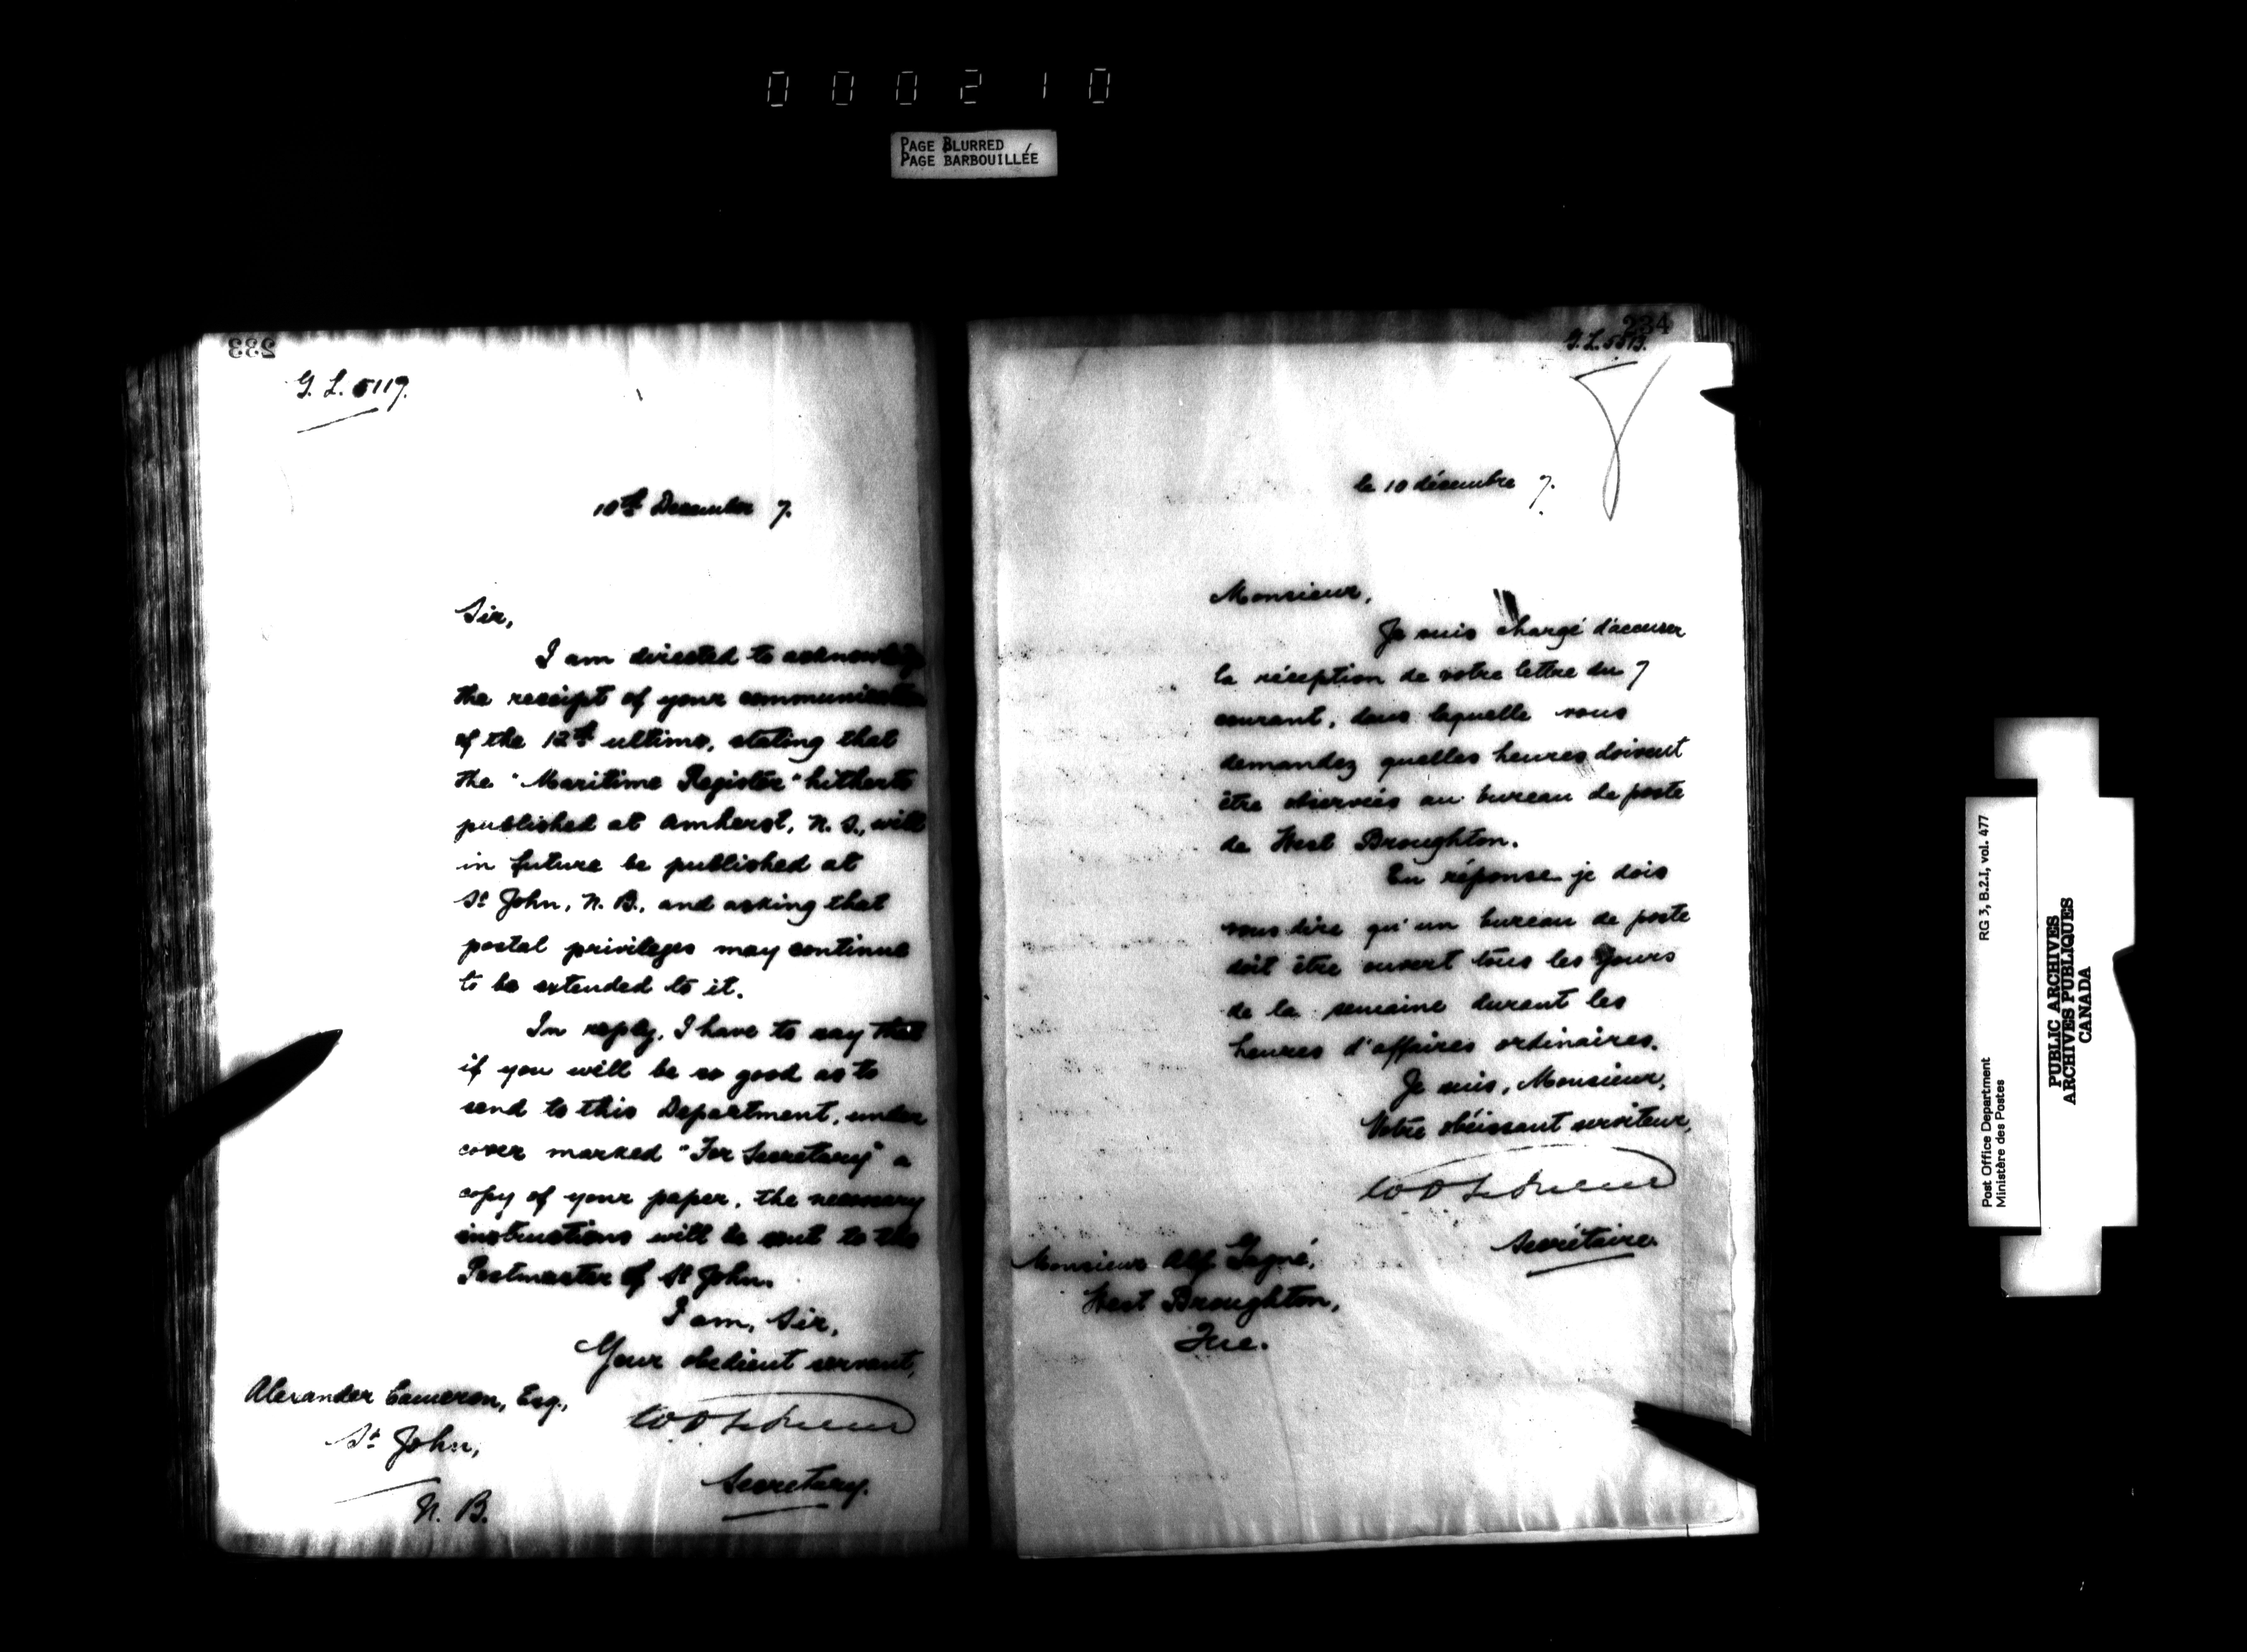 000210
PAGE BLURRED
PAGE BARBOUILLÉE
233
G. L. 5119.
10th December 7.
Sir,
I am directed to acknowledge
the receipt of your communication
of the 12th ultimo, stating that
the "Maritime Register" hitherto
published at Amherst, N. S., will
in future be published at
St John, N. B., and asking that
postal privileges may continue
to be extended to it.
In reply, I have to say that
if you will be so good as to
send to this Department, under
cover marked "For Secretary" a
copy of your paper, the necessary
instructions will be sent to the
Postmaster of St John.
I am, Sir,
Your obedient servant,
Secretary.
Alexander Cameron, Esq.,
St John,
N. B.
234
G. L. 5513.
le 10 décembre 7.
Monsieur,
Je suis chargé d'accuser
la réception de votre lettre du 7
courant, dans laquelle vous
demandez quelles heures doivent
être observées au bureau de poste
de West Broughton.
En réponse je dois
vous dire qu'un bureau de poste
doit être ouvert tous les jours
de la semaine durant les
heures d'affaires ordinaires.
Je suis, Monsieur,
Votre obéissant serviteur,
Secrétaire.
Monsieur Alf.
West Broughton,
Que.
Post Office Department
Ministère des Postes
RG 3, B.2.I, vol. 477
PUBLIC ARCHIVES
ARCHIVES PUBLIQUES
CANADA